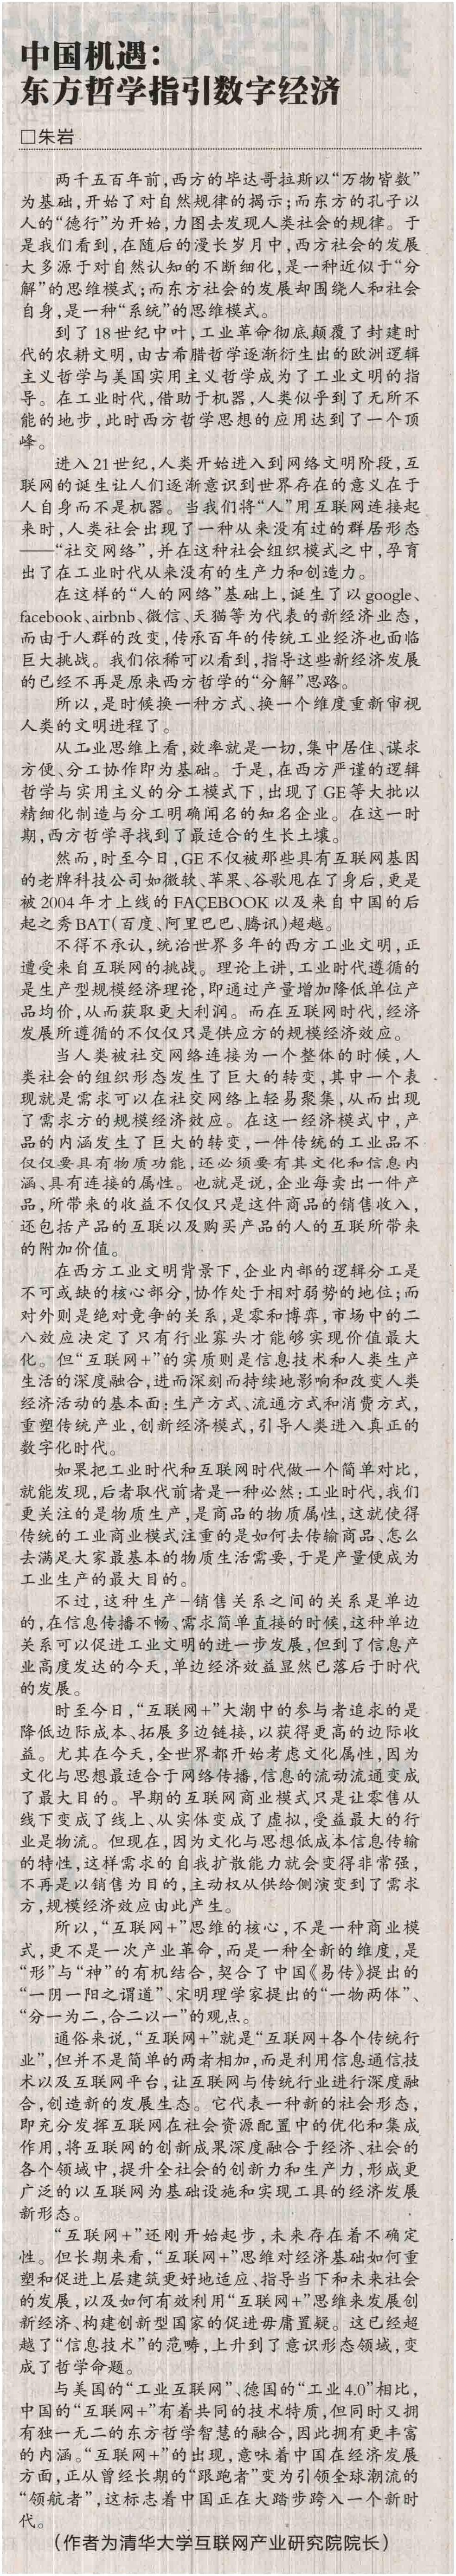 中国机遇：
东方哲学指引数字经济
□朱岩
两千五百年前,西方的毕达哥拉斯以“万物皆数”
为基础,开始了对自然规律的揭示;而东方的孔子以
人的“德行”为开始,力图去发现人类社会的规律。于
是我们看到,在随后的漫长岁月中,西方社会的发展
大多源于对自然认知的不断细化,是一种近似于“分
解”的思维模式;而东方社会的发展却围绕人和社会
自身,是一种“系统”的思维模式。
到了18世纪中叶,工业革命彻底颠覆了封建时
代的农耕文明,由古希腊哲学逐渐衍生出的欧洲逻辑
主义哲学与美国实用主义哲学成为了工业文明的指
导。在工业时代,借助于机器,人类似乎到了无所不
能的地步,此时西方哲学思想的应用达到了一个顶
峰。
进入21世纪,人类开始进入到网络文明阶段,互
联网的诞生让人们逐渐意识到世界存在的意义在于
人自身而不是机器。当我们将“人”用互联网连接起
来时,人类社会出现了一种从来没有过的群居形态
——“社交网络”,并在这种社会组织模式之中,孕育
出了在工业时代从来没有的生产力和创造力。
在这样的“人的网络”基础上,诞生了以google、
facebook、airbnb、微信、天猫等为代表的新经济业态,
而由于人群的改变,传承百年的传统工业经济也面临
巨大挑战。我们依稀可以看到,指导这些新经济发展
的已经不再是原来西方哲学的“分解”思路。
所以,是时候换一种方式、换一个维度重新审视
人类的文明进程了。
从工业思维上看,效率就是一切,集中居住、谋求
方便、分工协作即为基础。于是,在西方严谨的逻辑
哲学与实用主义的分工模式下,出现了GE等大批以
精细化制造与分工明确闻名的知名企业。在这一时
期,西方哲学寻找到了最适合的生长土壤。
然而,时至今日,GE不仅被那些具有互联网基因
的老牌科技公司如微软、苹果、谷歌甩在了身后,更是
被2004年才上线的FACEBOOK以及来自中国的后
起之秀BAT(百度、阿里巴巴、腾讯)超越。
不得不承认,统治世界多年的西方工业文明,正
遭受来自互联网的挑战。理论上讲,工业时代遵循的
是生产型规模经济理论,即通过产量增加降低单位产
品均价,从而获取更大利润。而在互联网时代,经济
发展所遵循的不仅仅只是供应方的规模经济效应。
当人类被社交网络连接为一个整体的时候,人
类社会的组织形态发生了巨大的转变,其中一个表
现就是需求可以在社交网络上轻易聚集,从而出现
了需求方的规模经济效应。在这一经济模式中,产
品的内涵发生了巨大的转变,一件传统的工业品不
仅仅要具有物质功能,还必须要有其文化和信息内
涵、具有连接的属性。也就是说,企业每卖出一件产
品,所带来的收益不仅仅只是这件商品的销售收入,
还包括产品的互联以及购买产品的人的互联所带来
的附加价值。
在西方工业文明背景下,企业内部的逻辑分工是
不可或缺的核心部分,协作处于相对弱势的地位;而
对外则是绝对竞争的关系,是零和博弈,市场中的二
八效应决定了只有行业寡头才能够实现价值最大
化。但“互联网+”的实质则是信息技术和人类生产
生活的深度融合,进而深刻而持续地影响和改变人类
经济活动的基本面:生产方式、流通方式和消费方式,
重塑传统产业,创新经济模式,引导人类进入真正的
数字化时代。
如果把工业时代和互联网时代做一个简单对比,
就能发现,后者取代前者是一种必然:工业时代,我们
更关注的是物质生产,是商品的物质属性,这就使得
传统的工业商业模式注重的是如何去传输商品、怎么
去满足大家最基本的物质生活需要,于是产量便成为
工业生产的最大目的。
不过,这种生产-销售关系之间的关系是单边
的,在信息传播不畅、需求简单直接的时候,这种单边
关系可以促进工业文明的进一步发展,但到了信息产
业高度发达的今天,单边经济效益显然已落后于时代
的发展。
时至今日,“互联网+”大潮中的参与者追求的是
降低边际成本、拓展多边链接,以获得更高的边际收
益。尤其在今天,全世界都开始考虑文化属性,因为
文化与思想最适合于网络传播,信息的流动流通变成
了最大目的。早期的互联网商业模式只是让零售从
线下变成了线上、从实体变成了虚拟,受益最大的行
业是物流。但现在,因为文化与思想低成本信息传输
的特性,这样需求的自我扩散能力就会变得非常强,
不再是以销售为目的,主动权从供给侧演变到了需求
方,规模经济效应由此产生。
所以,“互联网+”思维的核心,不是一种商业模
式,更不是一次产业革命,而是一种全新的维度,是
“形”与“神”的有机结合,契合了中国《易传》提出的
“一阴一阳之谓道”、宋明理学家提出的“一物两体”、
“分一为二,合二以一”的观点。
通俗来说,“互联网+”就是“互联网+各个传统行
业”,但并不是简单的两者相加,而是利用信息通信技
术以及互联网平台,让互联网与传统行业进行深度融
合,创造新的发展生态。它代表一种新的社会形态,
即充分发挥互联网在社会资源配置中的优化和集成
作用,将互联网的创新成果深度融合于经济、社会的
各个领域中,提升全社会的创新力和生产力,形成更
广泛的以互联网为基础设施和实现工具的经济发展
新形态。
“互联网+”还刚开始起步,未来存在着不确定
性。但长期来看,“互联网+”思维对经济基础如何重
塑和促进上层建筑更好地适应、指导当下和未来社会
的发展,以及如何有效利用“互联网+”思维来发展创
新经济、构建创新型国家的促进毋庸置疑。这已经超
越了“信息技术”的范畴,上升到了意识形态领域,变
成了哲学命题。
与美国的“工业互联网”、德国的“工业4.0”相比,
中国的“互联网+”有着共同的技术特质,但同时又拥
有独一无二的东方哲学智慧的融合,因此拥有更丰富
的内涵。“互联网+”的出现,意味着中国在经济发展
方面,正从曾经长期的“跟跑者”变为引领全球潮流的
“领航者”,这标志着中国正在大踏步跨入一个新时
代。
(作者为清华大学互联网产业研究院院长)